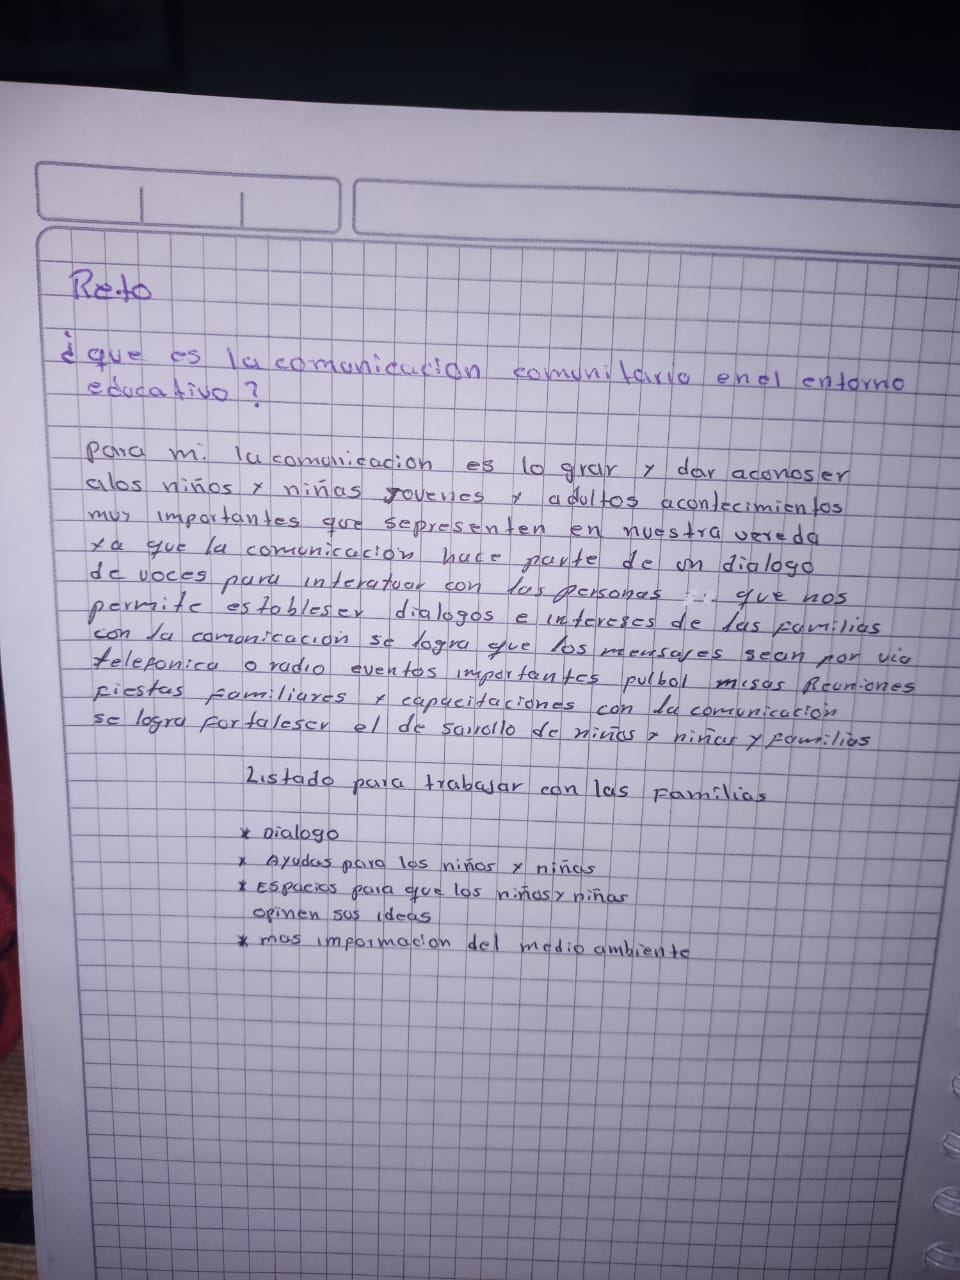 Reto
¿que es la comunicacion comunitaria en el entorno
educativo?
para mi la comunicacion es lo grar y dar aconoser
alos niños y niñas jovenes y adultos acontecimientos
muy importantes que sepresenten en nuestra vereda
ya que la comunicación hace parte de un dialogo
de voces para interatuar con las personas que nos
permite estableser dialogos e intereses de las familias
con la comunicación se logra que los mensajes sean por via
telefonica o radio eventos importantes pulbol misas Reuniones
fiestas familiares y capacitaciones con la comunicacion
se logra fortaleser el de sarrollo de niños y niñas y familias
Listado para trabajar con las familias
* Dialogo
* Ayudas para los niños y niñas
* Espacios para que los niños y niñas
opinen sus ideas
* mas informacion del medio ambiente